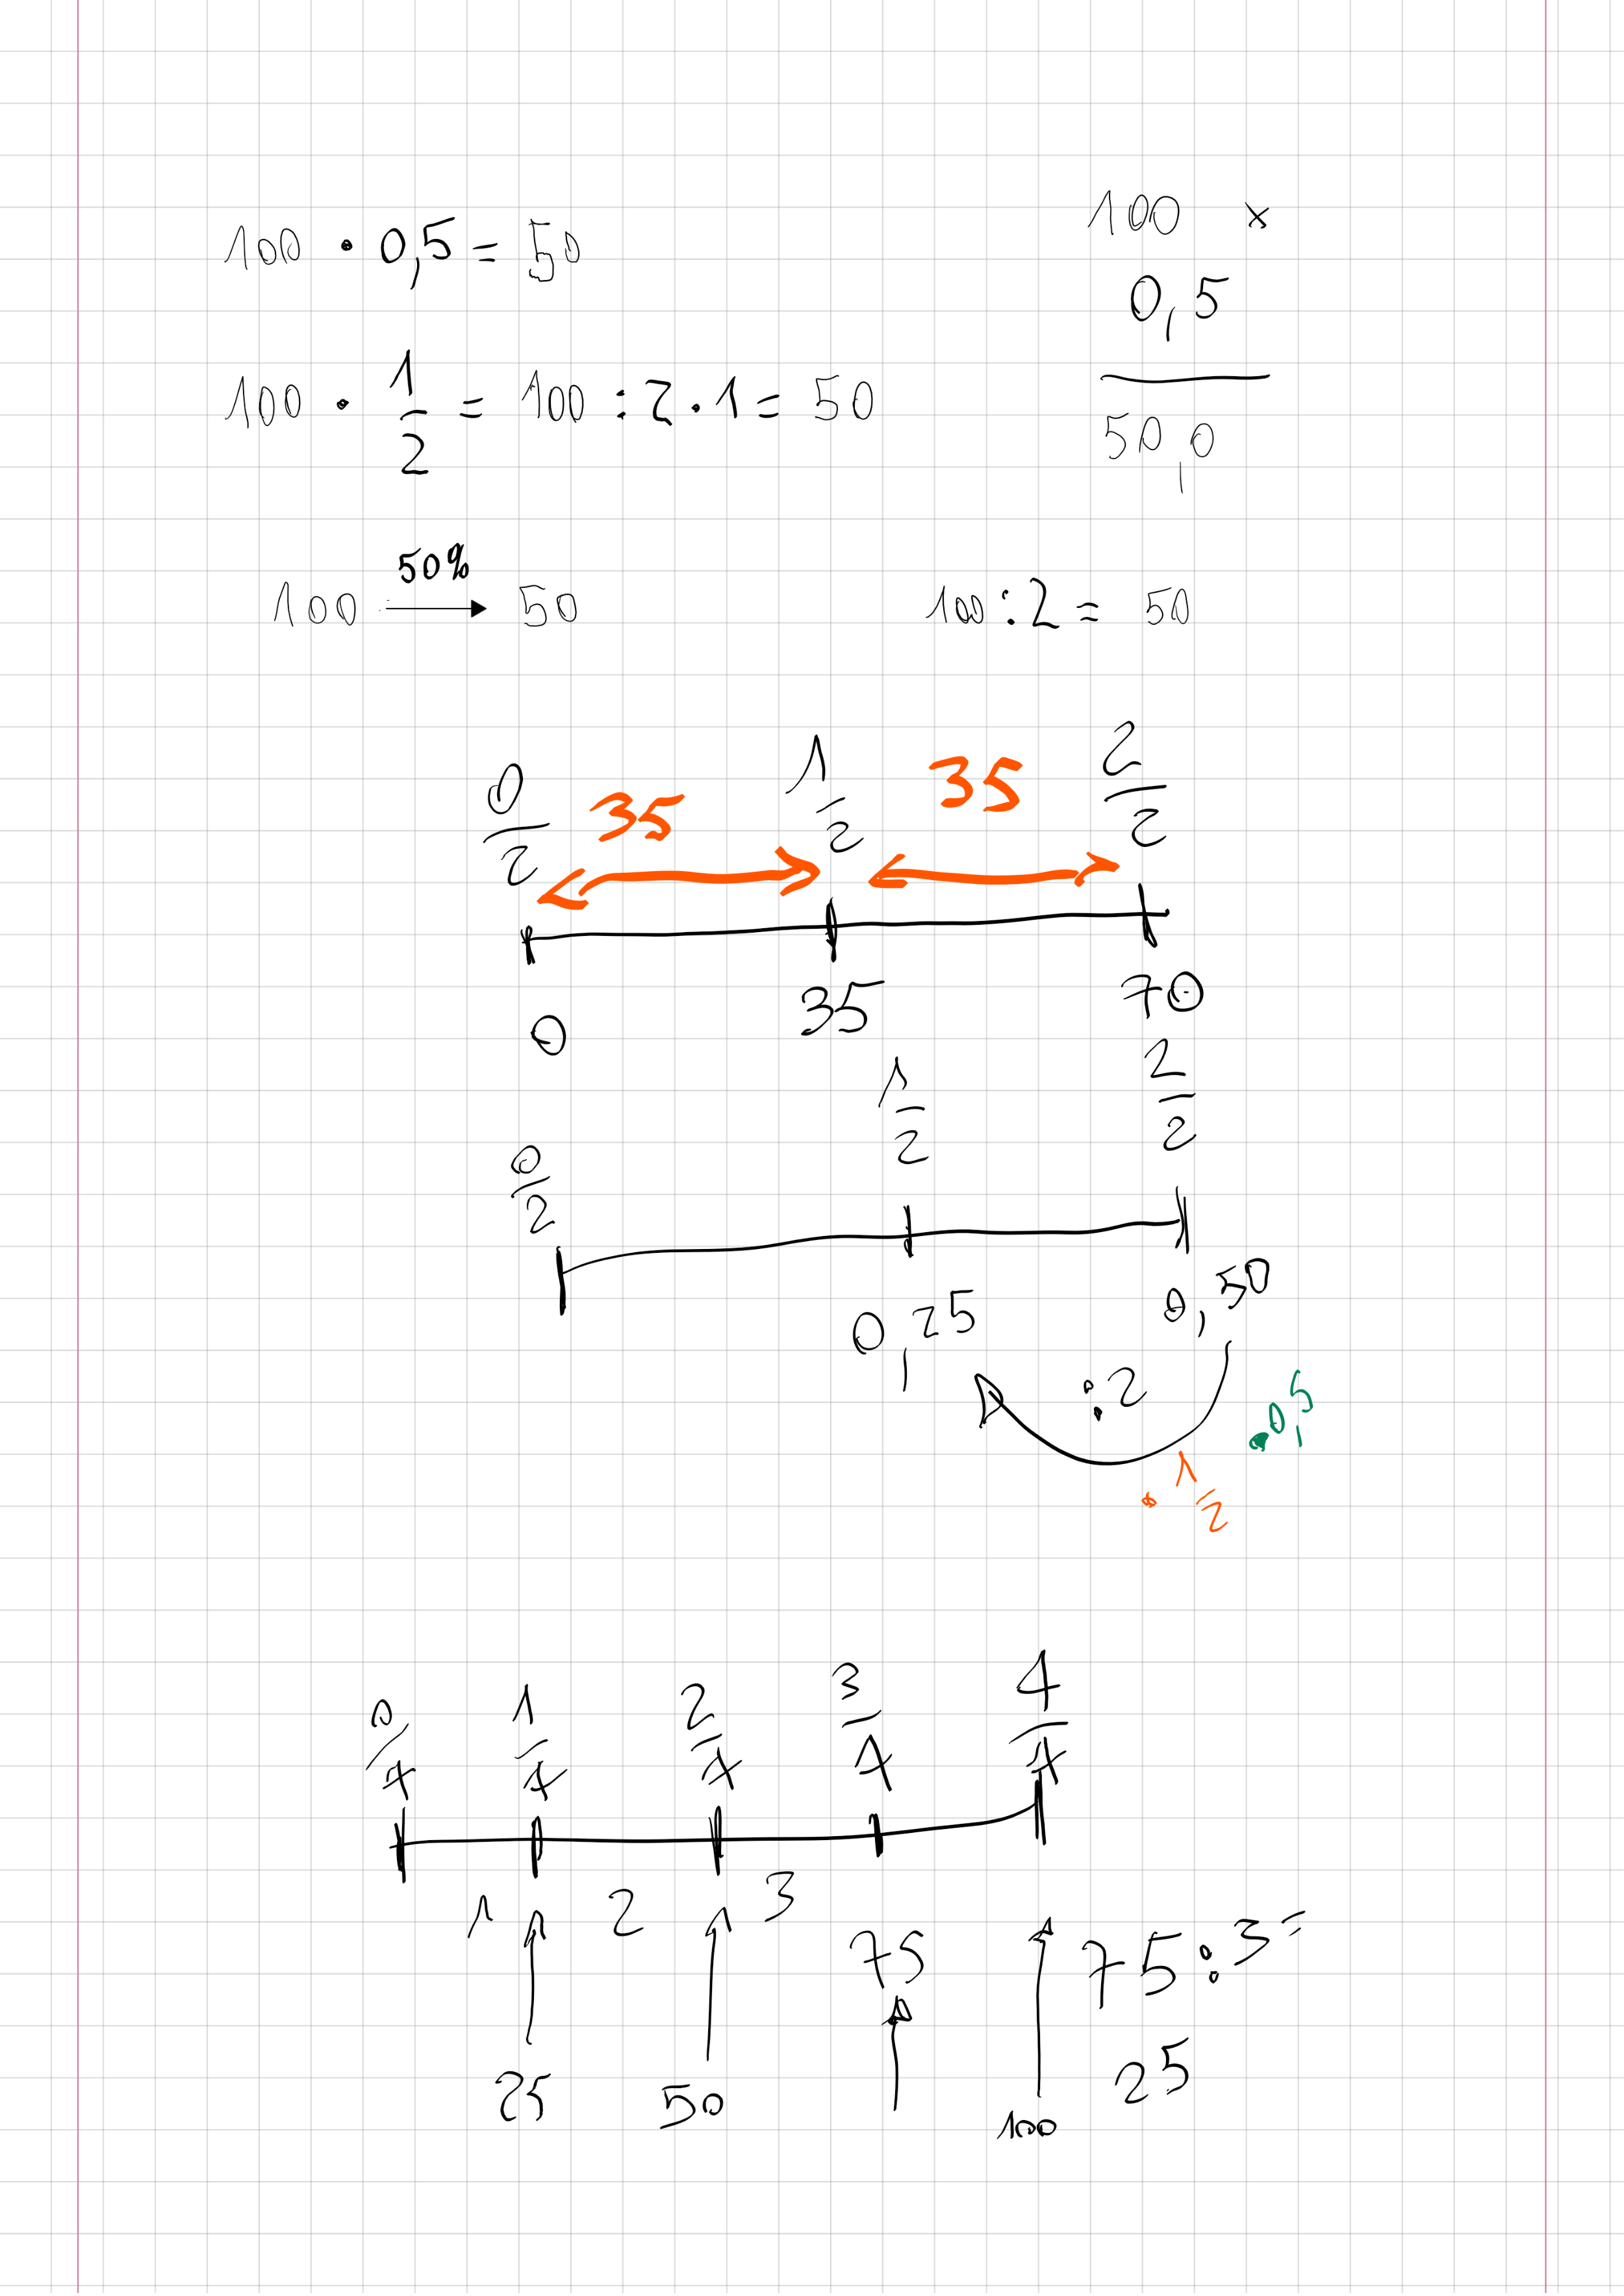 100 · 0,5 = 50
100 ×
0,5
50,0
100 · 1/2 = 100 : 2 · 1 = 50
100 50% → 50
100 : 2 = 50
0/2 35 1/2 35 2/2
0 35 70
0/2 1/2 2/2
0,25 0,50
: 2
· 0,5
· 1/2
0/4 1/4 2/4 3/4 4/4
1 2 3
75 75 : 3 =
25 50 100 25